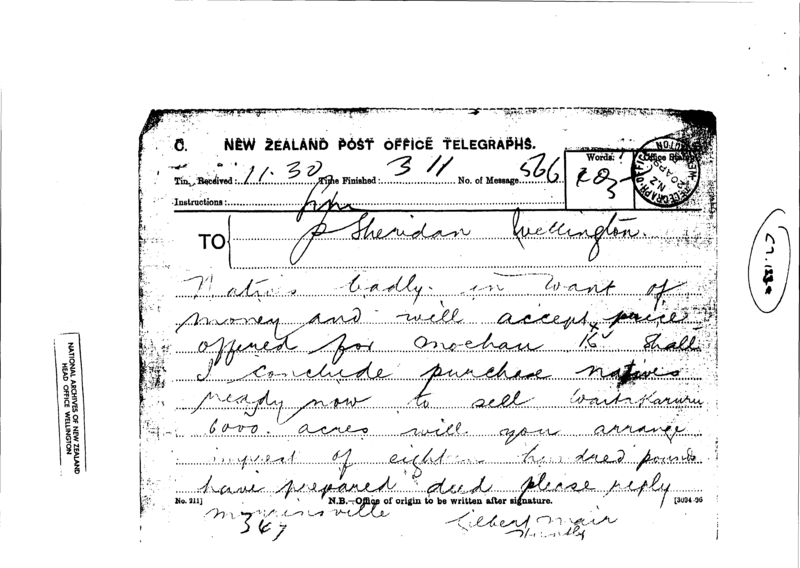 C. NEW ZEALAND POST OFFICE TELEGRAPHS.
Time Received: 11.30 Time Finished: 3 11 No. of Message 566 Words: 103 Office Stamp
Instructions:
TO P Sheridan Wellington.
Natives badly in want of
money and will accept price
offered for shall
I conclude purchase natives
ready now to sell Waitakaruru
6000 acres will you arrange
imprest of eighteen hundred pounds
have prepared deed please reply
No. 211] N.B.—Office of origin to be written after signature. [3094-96
Morrinsville Gilbert Mair
347
NATIONAL ARCHIVES OF NEW ZEALAND
HEAD OFFICE WELLINGTON